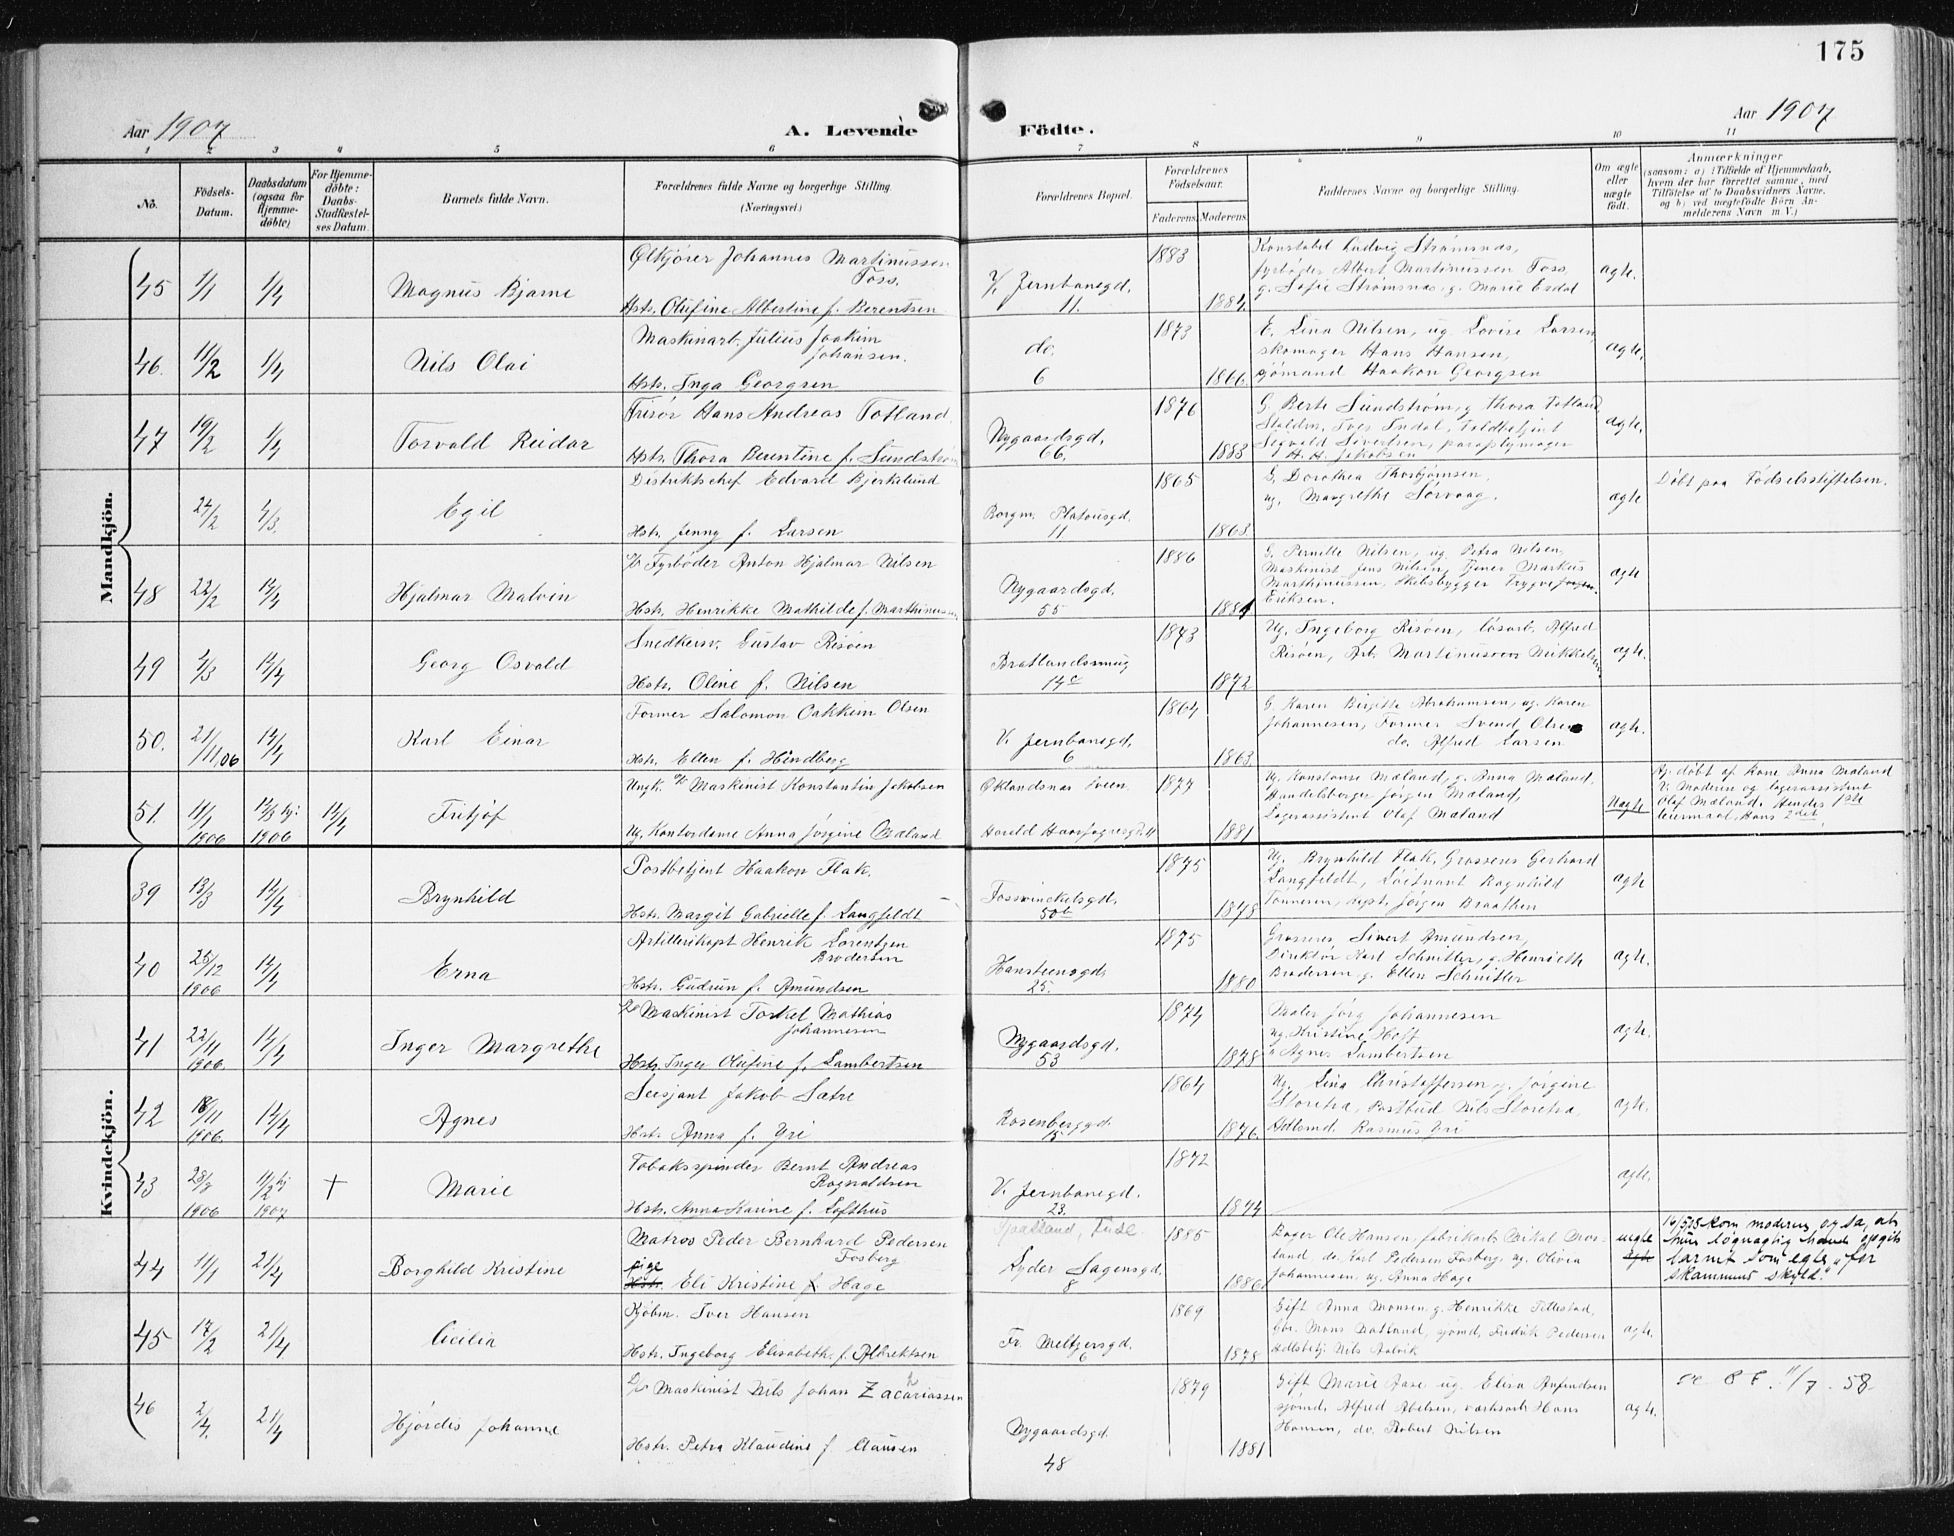 175
Aar 1907
A. Levende Födte.
Aar 1907
1 2 3 4 5 6 7 8 9 10 11
No.
Födsels-Datum.
Daabsdatum (ogsaa for Hjemmedöbte)
For Hjemmedöbte: Daabs-Stadfestelses Datum.
Barnets fulde Navn.
Forældrenes fulde Navne og borgerlige Stilling. (Næringsvei.)
Forældrenes Bopæl.
Forældrenes Födselsaar.
Faderens. Moderens.
Faddernes Navne og borgerlige Stilling.
Om ægte eller uægte födt.
Anmærkninger
(saasom: a) i Tilfælde af Hjemmedaab, hvem der har forrettet samme, med Tilföielse af to Daabsvidners Navne, og b) ved uægtefödte Börn Anmelderens Navn m. V.)
Mandkjön.
45 1/1 1/4 Magnus Bjarne
Ølkjører Johannes Martinussen
Foss.
Hstr. Olufine Albertine f. Berentsen
V. Jernbanegd.
11.
1883
1884
Konstabel Ludvig Strømsnæs,
fyrbøder Albert Martinussen Foss,
g. Sofie Strømsnæs, g. Marie Esdal
ægte.
46. 11/2 1/4 Nils Olai
Maskinarb. Julius Joakim
Johansen.
Hstr. Inga Georgsen
do.
6
1873
1866
E. Lina Nilsen, ug. Lovise Larsen
skomager Hans Hansen,
sjømand Haakon Georgsen
ægte.
47 19/2 1/4 Torvald Reidar
Frisør Hans Andreas Totland
Hstr. Thora Berentine f. Sundstrøm
Nygaardsgd.
66.
1876
1883
G. Berte Sundstrøm, g. Thora Totland
Sigvald Sivertsen, paraplymager
H. H. Jakobsen
ægte.
24/2 4/3 Egil
Distriktschef Edvard Bjerkelund
Hstr. Jenny f. Larsen
Borgm. Platousgd.
11
1865
1863
G. Dorothea Thorbjørnsen,
ug. Margrethe Sørvaag.
ægte
Døbt paa Fødselsstiftelsen.
48 22/2 14/4 Hjalmar Malvin
Fyrbøder Anton Hjalmar Nilsen
Hstr. Henrikke Mathilde f. Marthinussen
Nygaardsgd.
55
1886
1884
G. Pernille Nilsen, ug. Petra Nilsen,
Maskinist Jens Nilsen, Tjener Markus
Marthinussen, Skibsbygger Trygve Jørgen
Eriksen.
ægte
49 14/4 Georg Osvald
Snedkersv. Gustav Risøen
Hstr. Oline f. Nilsen
Bratlandssmug
14c
1873
1872
Ug. Ingeborg Risøen, løsarb. Alfred
Risøen, Arb. Martinus Mikkelsen
ægte.
50. 21/11,06 14/4 Karl Einar
Former Salomon Oakkim Olsen
Hstr. Ellen f. Hindberg
V. Jernbanegd.
6
1864
1863
G. Karen Birgitte Abrahamsen, ug. Karen
Johannesen, Former Svend Olsen
do. Alfred Larsen
ægte.
51. 11/1 1906 1906 14/4 Fritjof
Ungk. Maskinist Konstantin Jakobsen
Ug. Kontordame Anna Jørgine Mæland
1877
1881
Ug. Konstanse Mæland, g. Anna Mæland
Handelsborger Jørgen Mæland,
Lagerassistent Olaf Mæland
Uægte
Hj. døbt af Kone Anna Mæland
V. Moderen og lagerassistent
Olaf Mæland. Hendes 1ste
leiermaal, Hans 2det.
Kvindekjön.
39 13/3 14/4 Brynhild
Postbetjent Haakon Flak.
Hstr. Margit Gabrielle f. Langfeldt
Fosswinckelsgd.
50b
1875
1878
Ug. Brynhild Flak, Grosserer Gerhard
Langfeldt, Løitnant Ragnhild
Jørgen Braathen
ægte
40 25/12 1906 14/4 Erna
Artillerikapt Henrik Lorentzen
Brodersen
Hstr. Gudrun f. Amundsen
Hansteensgd.
25.
1875
1880
Grosserer Sivert Amundsen,
Direktør Karl Schnitler, g. Henriette
Brodersen g. Ellen Schnitler
ægte.
41 22/11 1906. 14/4 Inger Margrethe
Maskinist Torkel Mathias
Johannesen
Hstr. Inger Olufine f. Lambertsen
Nygaardsgd.
53
1874
1878
Maler Jørg Johannesen
ug. Kristine Hoff
Agnes Lambertsen
ægte.
42 18/11 1906. 14/4 Agnes
Sersjant Jakob Sætre
Hstr. Anna f. Yri
Rosenberggd.
15
1864
1876.
Ug. Lina Christoffersen g. Jørgine
Storetra, Postbud Nils Storetra
Rasmus Yri
ægte.
43 28/8 1906 11/2 hj 1907 † Marie
Tobakspinder Bernt Andreas
Ragnvaldsen
Hstr. Anna Karine f. Lofthus
V. Jernbanegd.
23.
1872
1874
ægte.
44 11/1 21/4 Borghild Kristine
Matros Peder Bernhard Pedersen
Fosberg
pige
Hstr. Eli Kristine f Hage
Fuse
Lyder Sagensgd.
8
1885
1886
Bager Ole Hansen, fabrikarb. Mikal
do. Karl Pedersen Fosberg, ug. Olivia
Johannesen, ug. Anna Hage
uegte
ægte
kom moderen og sa, at
hun løgnagtig havde opgit
barnet som egte, "for
skammens skyld."
45 17/2 21/4 Cicilia
Kjøbm. Iver Hansen
Hstr. Ingeborg Elisabeth f. Albrektsen
Fr. Meltzersgd.
6
1869
1878
Gift Anna Monsen, g. Henrikke Tillestad,
Gbr. Mons Datland, sjømd. Fredrik Pedersen
Nils Aalvik
ægte.
46 2/4. 21/4 Hjørdis Johanne
Maskinist Nils Johan Zachariassen
Hstr. Petra Klaudine f Clausen
Nygaardsgd.
48
1879
1881
Gift Marie Aase ug. Elisa Anfindsen
sjømd. Alfred Abelsen, værksarb Hans
Hansen, do. Robert Nilsen
ægte.
11/7. 58